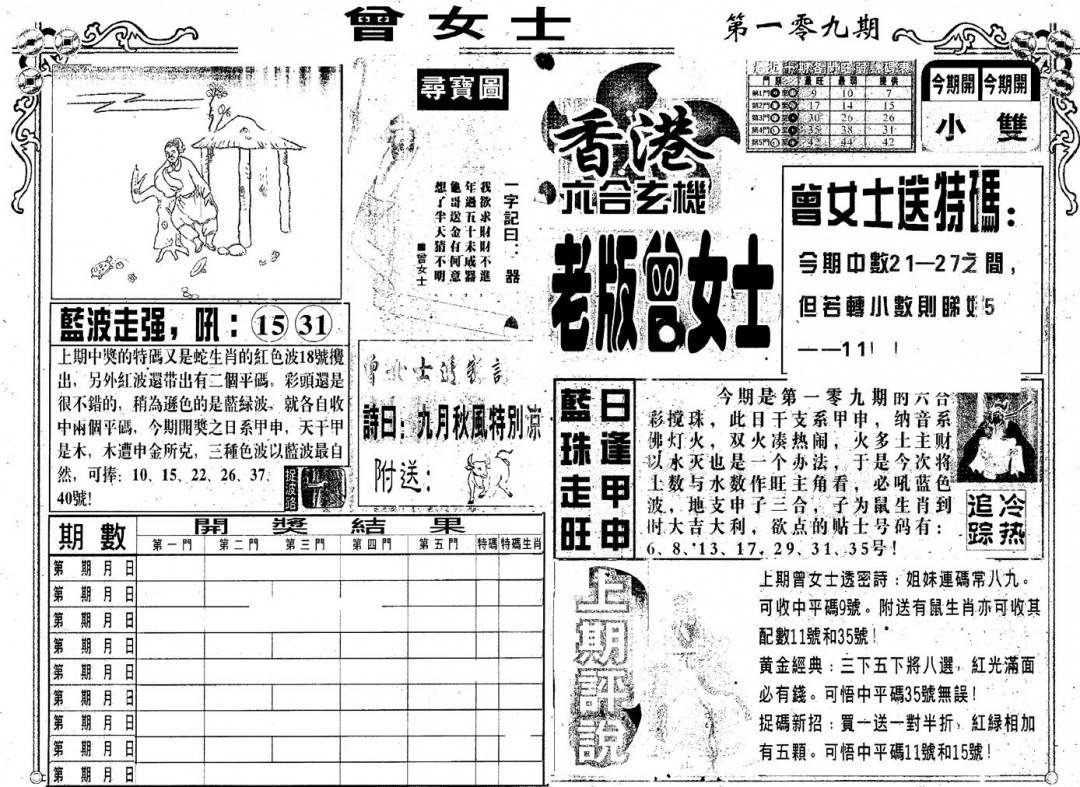 曾女士
第一零九期
尋寶圖
一字記曰：器
我欲求財財不進
年過五十未成器
龜哥送金有何意
想了半天猜不明
■曾女士
香港
六合玄機
老版曾女士
門類 最旺 最弱 提供
第1門 9 10 7
第2門 17 14 15
第3門 30 26 26
第4門 35 38 31
第5門 42 44 42
今期開 今期開
小 雙
曾女士送特碼：
今期中數21—27之間，
但若轉小數則睇好5
——11！！
藍波走强，吼：15 31
上期中獎的特碼又是蛇生肖的紅色波18號攪
出，另外紅波還带出有二個平碼，彩頭還是
很不錯的，稍為遜色的是藍緑波，就各自收
中兩個平碼，今期開獎之日系甲申，天干甲
是木，木遭申金所克，三種色波以藍波最自
然，可捧：10、15、22、26、37、
40號！
詩曰：九月秋風特別凉
附送：
藍珠走旺
日逢甲申
今期是第一零九期的六合
彩搅珠，此日干支系甲申，纳音系
佛灯火，双火凑热闹，火多土主财
以水灭也是一个办法，于是今次将
土数与水数作旺主角看，必吼蓝色
波，地支申子三合，子为鼠生肖到
时大吉大利，欲点的贴士号码有：
6、8、13、17、29、31、35号！
冷热
追踪
期數 開獎結果
第一門 第二門 第三門 第四門 第五門 特碼 特碼生肖
第 期 月 日
第 期 月 日
第 期 月 日
第 期 月 日
第 期 月 日
第 期 月 日
第 期 月 日
第 期 月 日
第 期 月 日
上期評說
上期曾女士透密詩：姐妹連碼常八九。
可收中平碼9號。附送有鼠生肖亦可收其
配數11號和35號！
黄金經典：三下五下將八選，紅光滿面
必有錢。可悟中平碼35號無誤！
捉碼新招：買一送一對半折，紅緑相加
有五顆。可悟中平碼11號和15號！